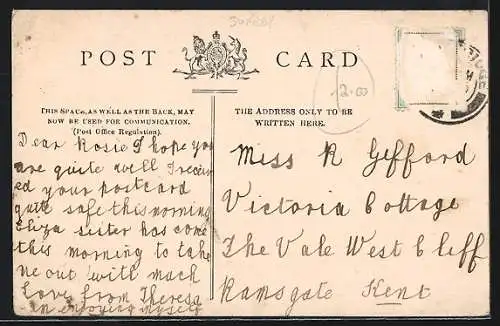 Surrey
POST CARD
12.00
THIS SPACE, AS WELL AS THE BACK, MAY
NOW BE USED FOR COMMUNICATION.
(Post Office Regulation).
THE ADDRESS ONLY TO BE
WRITTEN HERE.
Dear Rosie I hope you
are quite well I receiv
ed your postcard
quite safe this morning
Eliza sister has come
this morning to take
me out with much
Love from Theresa
an enjoying myself
Miss R Gefford
Victoria Cottage
The Vale West Cliff
Ramsgate Kent